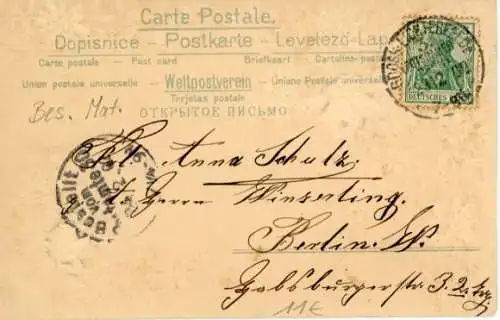 Carte Postale.
Dopisnice - Postkarte - Levelező-Lap
Carte postale - Post card - Briefkaart - Cartolina-posta
Union postale universelle - Weltpostverein - Unione Postale universale
Tarjetas postale
ОТКРЫТОЕ ПИСЬМО
DEUTSCHES
Bes. Mat.
Bestellt
vom
Postamte
Frl. Anna Schulz.
Herrn Winzerling.
Berlin. W.
Habsburgerstr. 3. 2. Trg.
11€